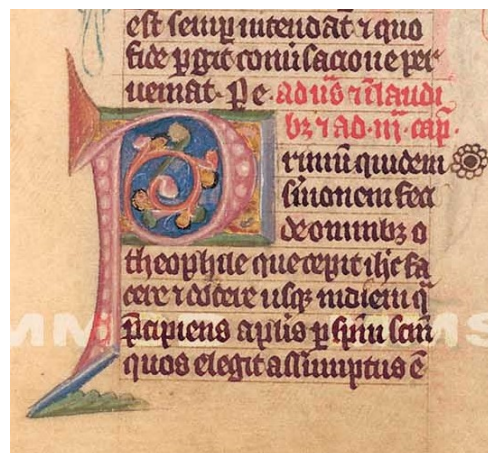 est semp intendat ⁊ quo
fide pgit conu̾sacione per
ueniat. P e. ad us̄ ⁊ ī laudi
bꝫ ⁊ ad .iij. cap.
Primū quidem
sermonem feci
de omnibꝫ o
theophile que cepit ihc fa
cere ⁊ docere usqꝫ in diem q̄
p̄cipiens aplīs p spm̄ scm̄
quos elegit assumptus ē